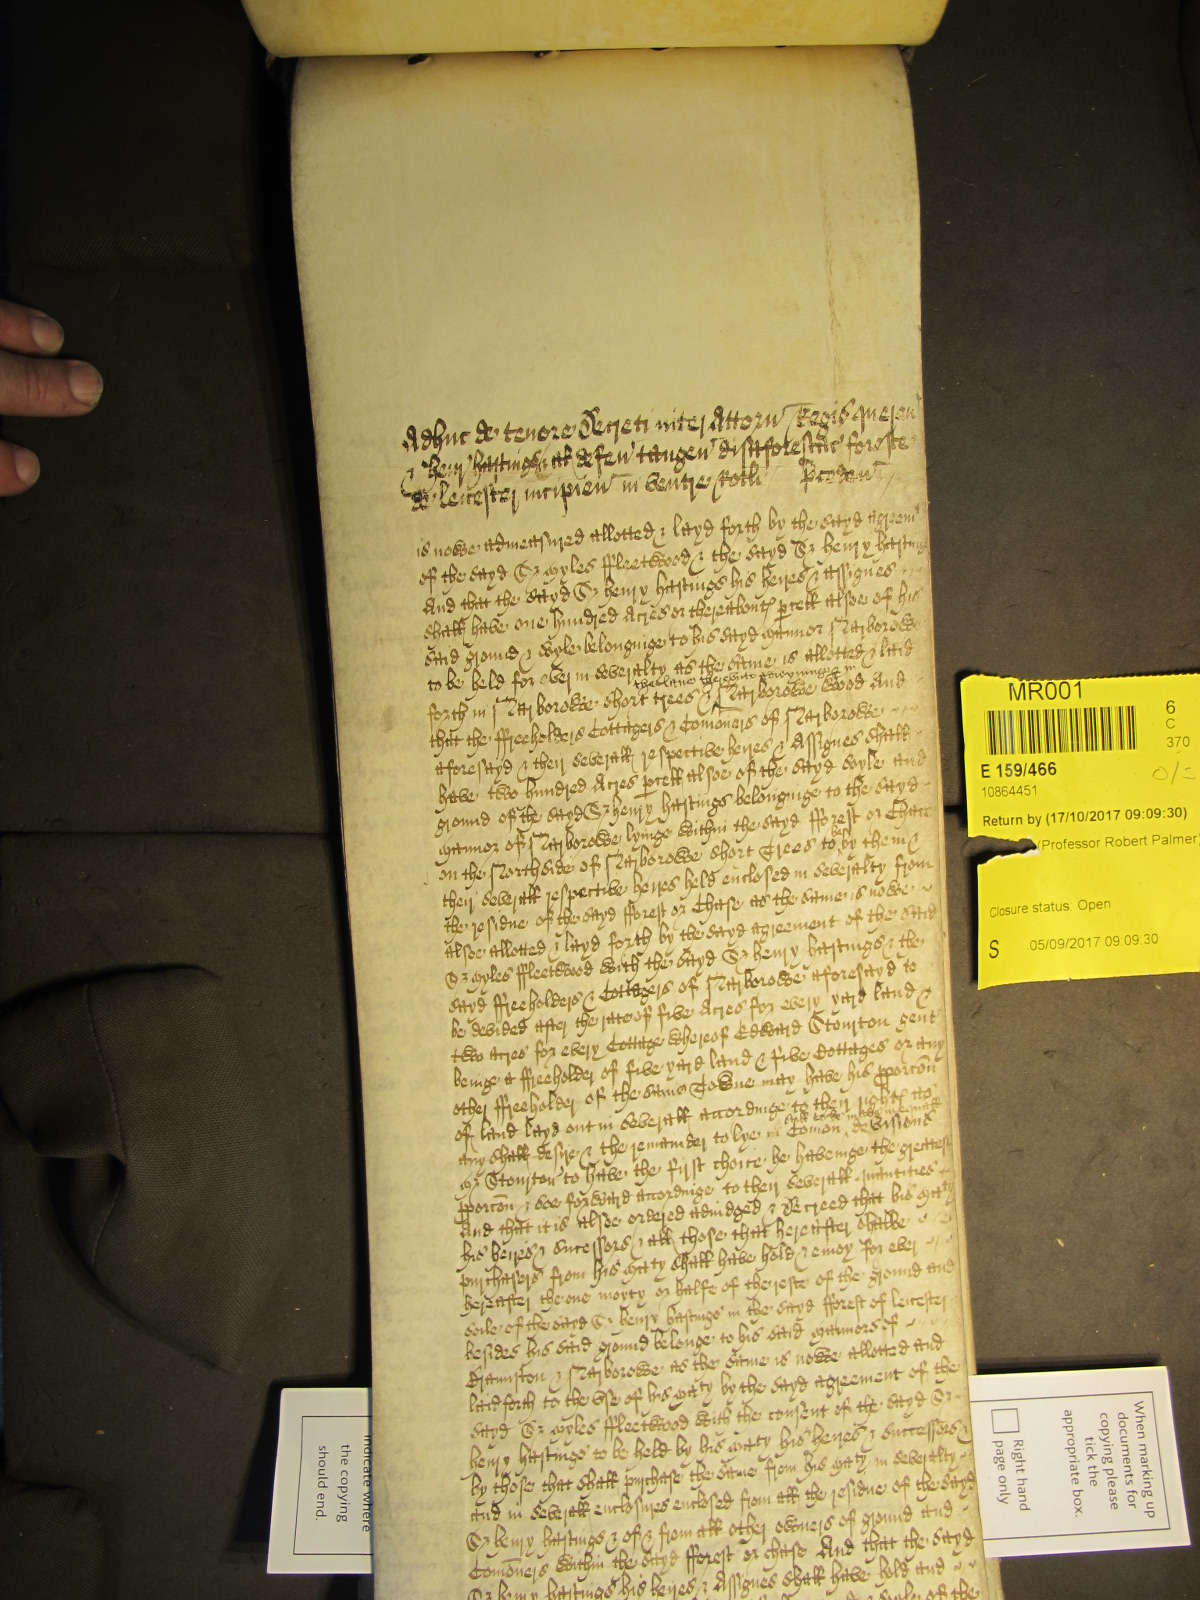 Adhuc de tenore Decreti inter Attorn Regis queren
& Henr Hastings & al defen tangen disafforestac foreste
de Leicester incipien in ventre Rotli
is nowe admeasured allotted & layd forth by the sayd agreem
of the sayd Sr Myles Fleetwood & the sayd Sr henry hastings
And that the sayd Sr henry hastings his heyres & assignes
shall have one hundred Acres or thereabouts pcell alsoe of his
said ground & soyle belonginge to his sayd mannor Narborowe
to be held for ever in severalty as the same is allotted & laid
the lane thereunto adioyninge in
forth in Narborowe short trees & Narborowe Wood And
that the ffreeholders Cottagers & Comoners of Narborowe
aforesayd & their severall respective heyres & Assignes shall
have two hundred Acres pcell alsoe of the sayd soyle and
ground of the sayd Sr henry hastings belonginge to the sayd
mannor of Narborowe lyinge within the sayd fforest or Chace
on the Northside of Narborowe short Trees to be by them &
their severall respective heyres held enclosed in severalty from
the residue of the sayd fforest or Chase as the same is nowe
alsoe allotted & layd forth by the sayd agreement of the said
Sr Myles ffleetwood with the sayd Sr henry hastings & the
sayd ffreeholders & Cottagers of Narborowe aforesayd to
be devided after the rate of five Acres for every yard land &
two acres for every Cottage whereof Edward Stonyton gent
beinge a ffreeholder of five yard land & five Cottages or any
other ffreeholder of the same Towne may have his pporcon
of land layd out in severall accordinge to their rights as
any shall desire & the remainder to lye in Comon devisions
Mr Stonyton to have the first choice he havinge the greatest
pporcon & soe forward accordinge to their severall quantities
And that it is alsoe ordered adiudged & Decreed that his Maty
his heyres & successors & all those that hereafter shalbe
purchasers from his Maty shall have hold & enioy for ever
hereafter the one moyty or halfe of the reste of the ground and
soile of the sayd Sr henry hastings in the sayd fforest of Leicester
besides his said ground belonge to his said mannors of
Braunston & Narborowe as the same is nowe allotted and
laid forth to the use of his Maty by the sayd agreement of the
sayd Sr Myles ffleetwood with the consent of the sayd Sr
henry hastings to be held by his Maty his heyres & successors &
by those that shall purchase the same from his Maty in severalty
and in severall enclosures enclosed from all the residue of the sayd
Sr henry hastings & of & from all other owners of ground and
Comoners within the sayd fforest or chase And that the sayd
Sr henry hastings his heyres & Assignes shall have hold and
MR001
6
C
370
E 159/466
10864451
Return by (17/10/2017 09:09:30)
(Professor Robert Palmer)
Closure status: Open
S 05/09/2017 09:09:30
When marking up
documents for
copying please
tick the
appropriate box.
Right hand
page only
indicate where
the copying
should end.